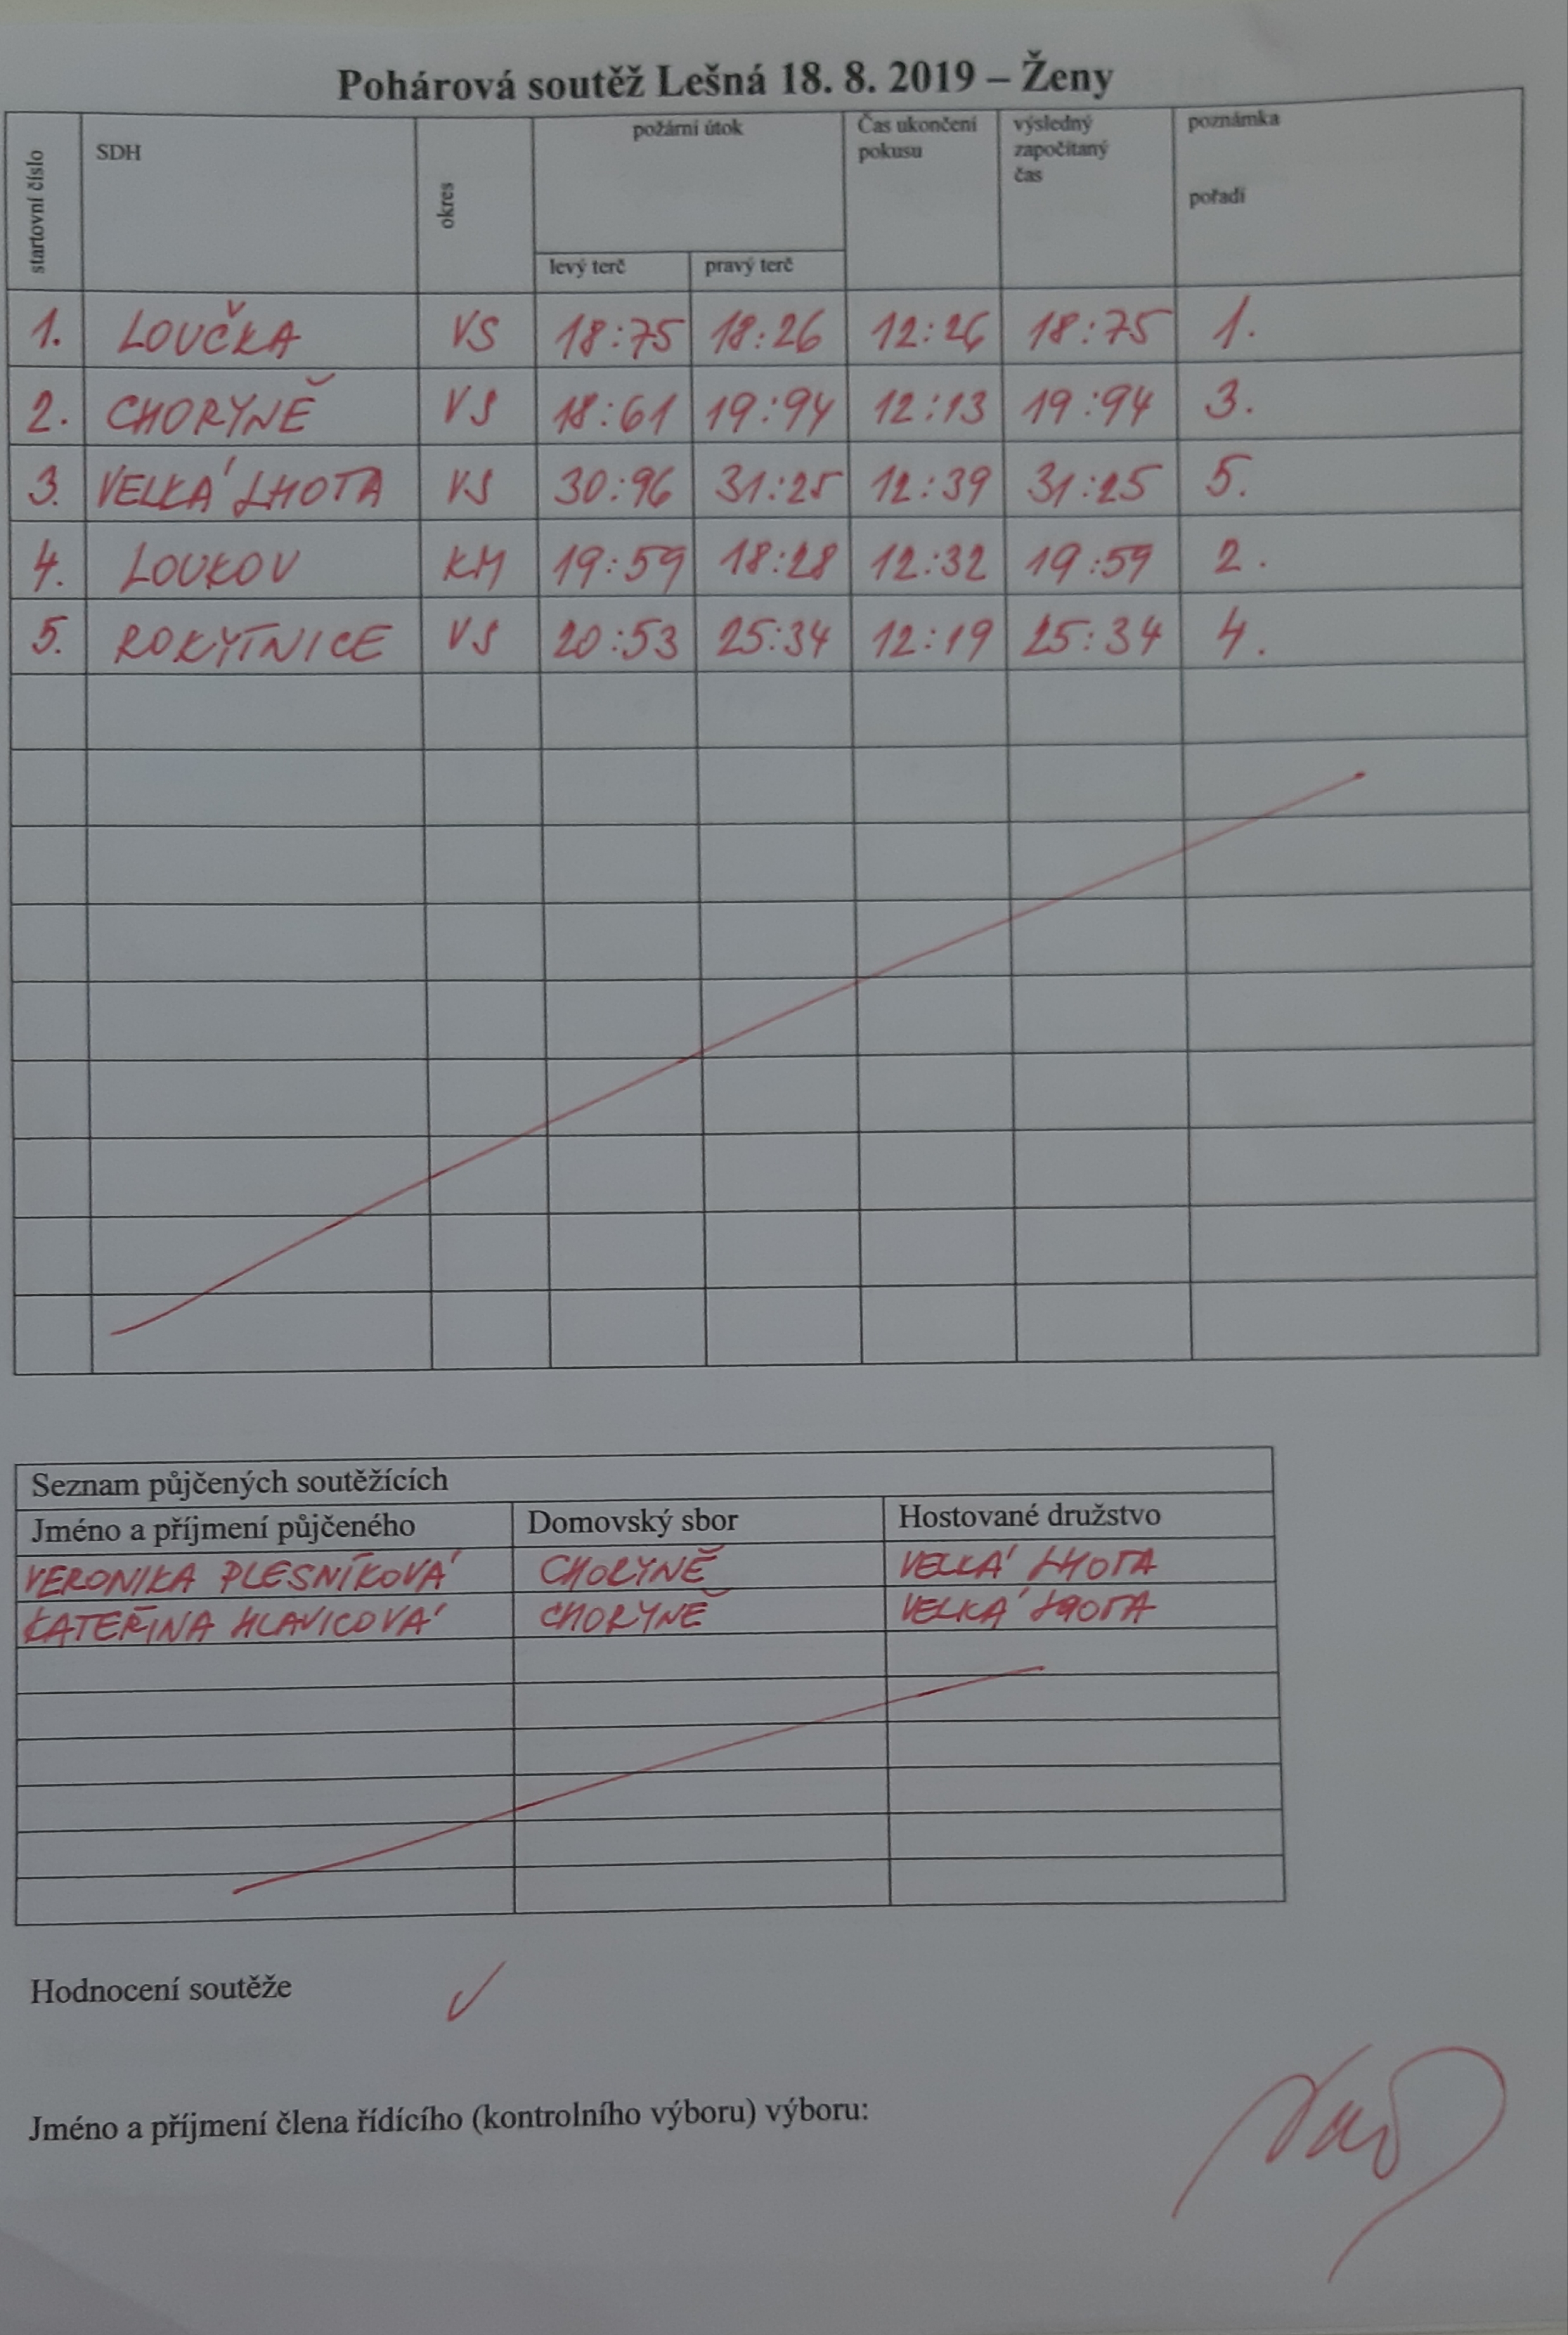 Pohárová soutěž Lešná 18. 8. 2019 – Ženy
startovní číslo SDH okres požární útok Čas ukončení pokusu výsledný započítaný čas poznámka pořadí
levý terč pravý terč
1. LOUČKA VS 18:75 18:26 12:26 18:75 1.
2. CHORYNĚ VS 18:61 19:94 12:13 19:94 3.
3. VELKÁ LHOTA VS 30:96 31:25 12:39 31:25 5.
4. LOUKOV KM 19:59 18:28 12:32 19:59 2.
5. ROKYTNICE VS 20:53 25:34 12:19 25:34 4.
Seznam půjčených soutěžících
Jméno a příjmení půjčeného Domovský sbor Hostované družstvo
VERONIKA PLESNÍKOVÁ CHORYNĚ VELKÁ LHOTA
KATEŘINA HLAVICOVÁ CHORYNĚ VELKÁ LHOTA
Hodnocení soutěže
Jméno a příjmení člena řídícího (kontrolního výboru) výboru: